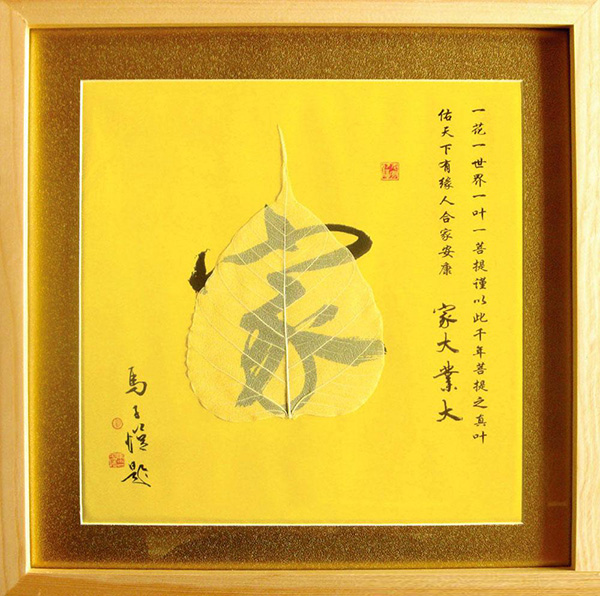 一花一世界一叶一菩提谨以此千年菩提之真叶
佑天下有缘人合家安康 家大業大
家
马子恺题